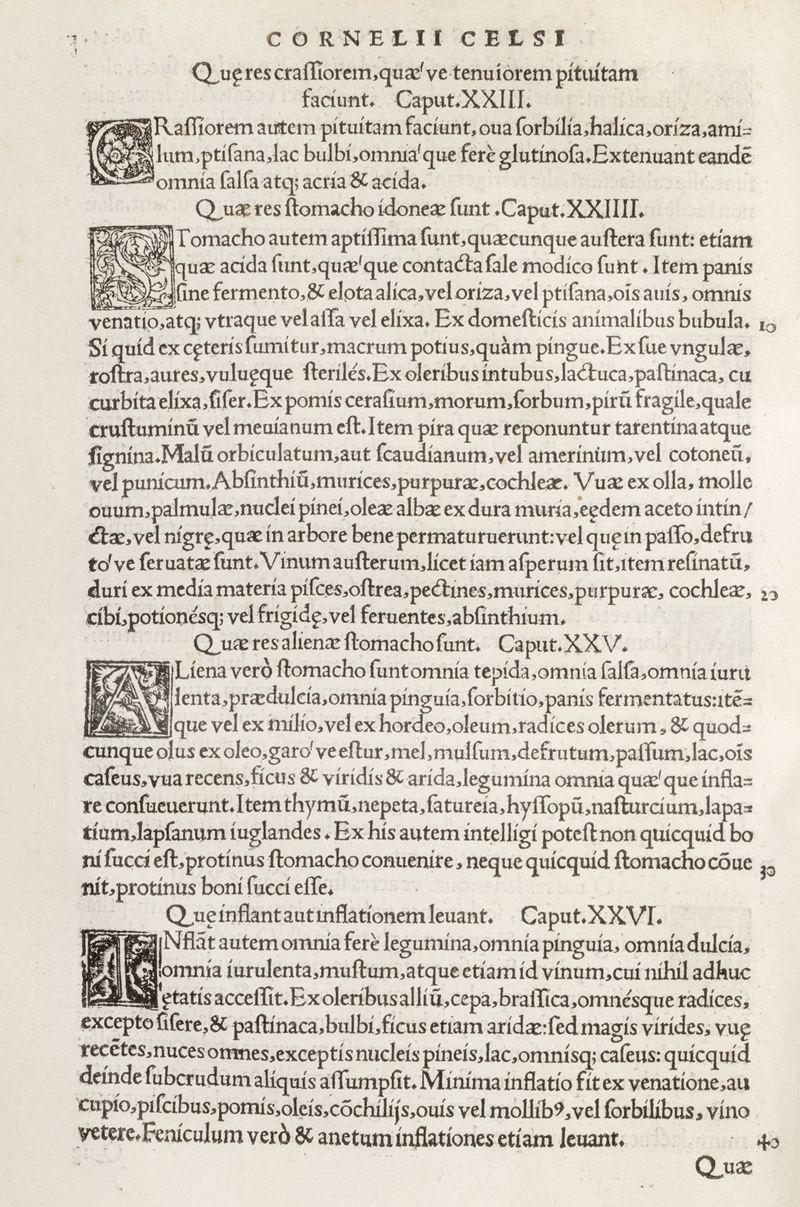 CORNELII CELSI
Quę res craſſiorem,quæ've tenuiorem pituitam
faciunt. Caput.XXIII.
CRaſſiorem autem pituitam faciunt, oua ſorbilia,halica,oriza,ami=
lum,ptiſana,lac bulbi,omnia'que ferè glutinoſa.Extenuant eandē
omnia ſalſa atq; acria & acida.
Quæ res ſtomacho idoneæ ſunt .Caput.XXIIII.
STomacho autem aptiſſima ſunt,quæcunque auſtera ſunt: etiam
quæ acida ſunt,quæ'que contacta ſale modico ſunt . Item panis
ſine fermento,& elota alica,vel oriza,vel ptiſana,oīs auis, omnis
venatio,atq; vtraque vel aſſa vel elixa. Ex domeſticis animalibus bubula. 10
Si quid ex cęteris ſumitur,macrum potius,quàm pingue.Ex ſue vngulæ,
roſtra,aures,vuluęque ſteriles.Ex oleribus intubus,lactuca,paſtinaca, cu
curbita elixa,ſiſer.Ex pomis ceraſium,morum,ſorbum,pirū fragile,quale
cruſtuminū vel meuianum eſt.Item pira quæ reponuntur tarentina atque
ſignina.Malū orbiculatum,aut ſcaudianum,vel amerinum,vel cotoneū,
vel punicum.Abſinthiū,murices,purpuræ,cochleæ. Vuæ ex olla, molle
ouum,palmulæ,nuclei pinei,oleæ albæ ex dura muria,eędem aceto intin/
ctæ,vel nigrę,quæ in arbore bene permaturuerunt:vel quę in paſſo,defru
to've ſeruatæ ſunt.Vinum auſterum,licet iam aſperum ſit,item reſinatū,
duri ex media materia piſces,oſtrea,pectines,murices,purpuræ, cochleæ, 20
cibi,potionésq; vel frigidę,vel feruentes,abſinthium.
Quæ res alienæ ſtomacho ſunt. Caput.XXV.
ALiena verò ſtomacho ſunt omnia tepida,omnia ſalſa,omnia iuru
lenta,prædulcia,omnia pinguia,ſorbitio,panis fermentatus:itē=
que vel ex milio,vel ex hordeo,oleum,radices olerum, & quod=
cunque olus ex oleo,garo've eſtur,mel,mulſum,defrutum,paſſum,lac,oīs
caſeus,vua recens,ficus & viridis & arida,legumina omnia quæ'que infla=
re conſueuerunt.Item thymū,nepeta,ſatureia,hyſſopū,naſturcium,lapa=
tium,lapſanum iuglandes . Ex his autem intelligi poteſt non quicquid bo
ni ſucci eſt,protinus ſtomacho conuenire, neque quicquid ſtomacho cōue 30
nit,protinus boni ſucci eſſe.
Quę inflant aut inflationem leuant. Caput.XXVI.
INflāt autem omnia ferè legumina,omnia pinguia, omnia dulcia,
omnia iurulenta,muſtum,atque etiam id vinum,cui nihil adhuc
ętatis acceſſit.Ex oleribus alliū,cepa,braſſica,omnésque radices,
excepto ſiſere,& paſtinaca,bulbi,ficus etiam aridæ:ſed magis virides, vuę
recētes,nuces omnes,exceptis nucleis pineis,lac,omnisq; caſeus: quicquid
deinde ſubcrudum aliquis aſſumpſit. Minima inflatio fit ex venatione,au
cupio,piſcibus,pomis,oleis,cōchilijs,ouis vel mollibꝰ,vel ſorbilibus, vino
vetere.Feniculum verò & anetum inflationes etiam leuant. 40
Quæ